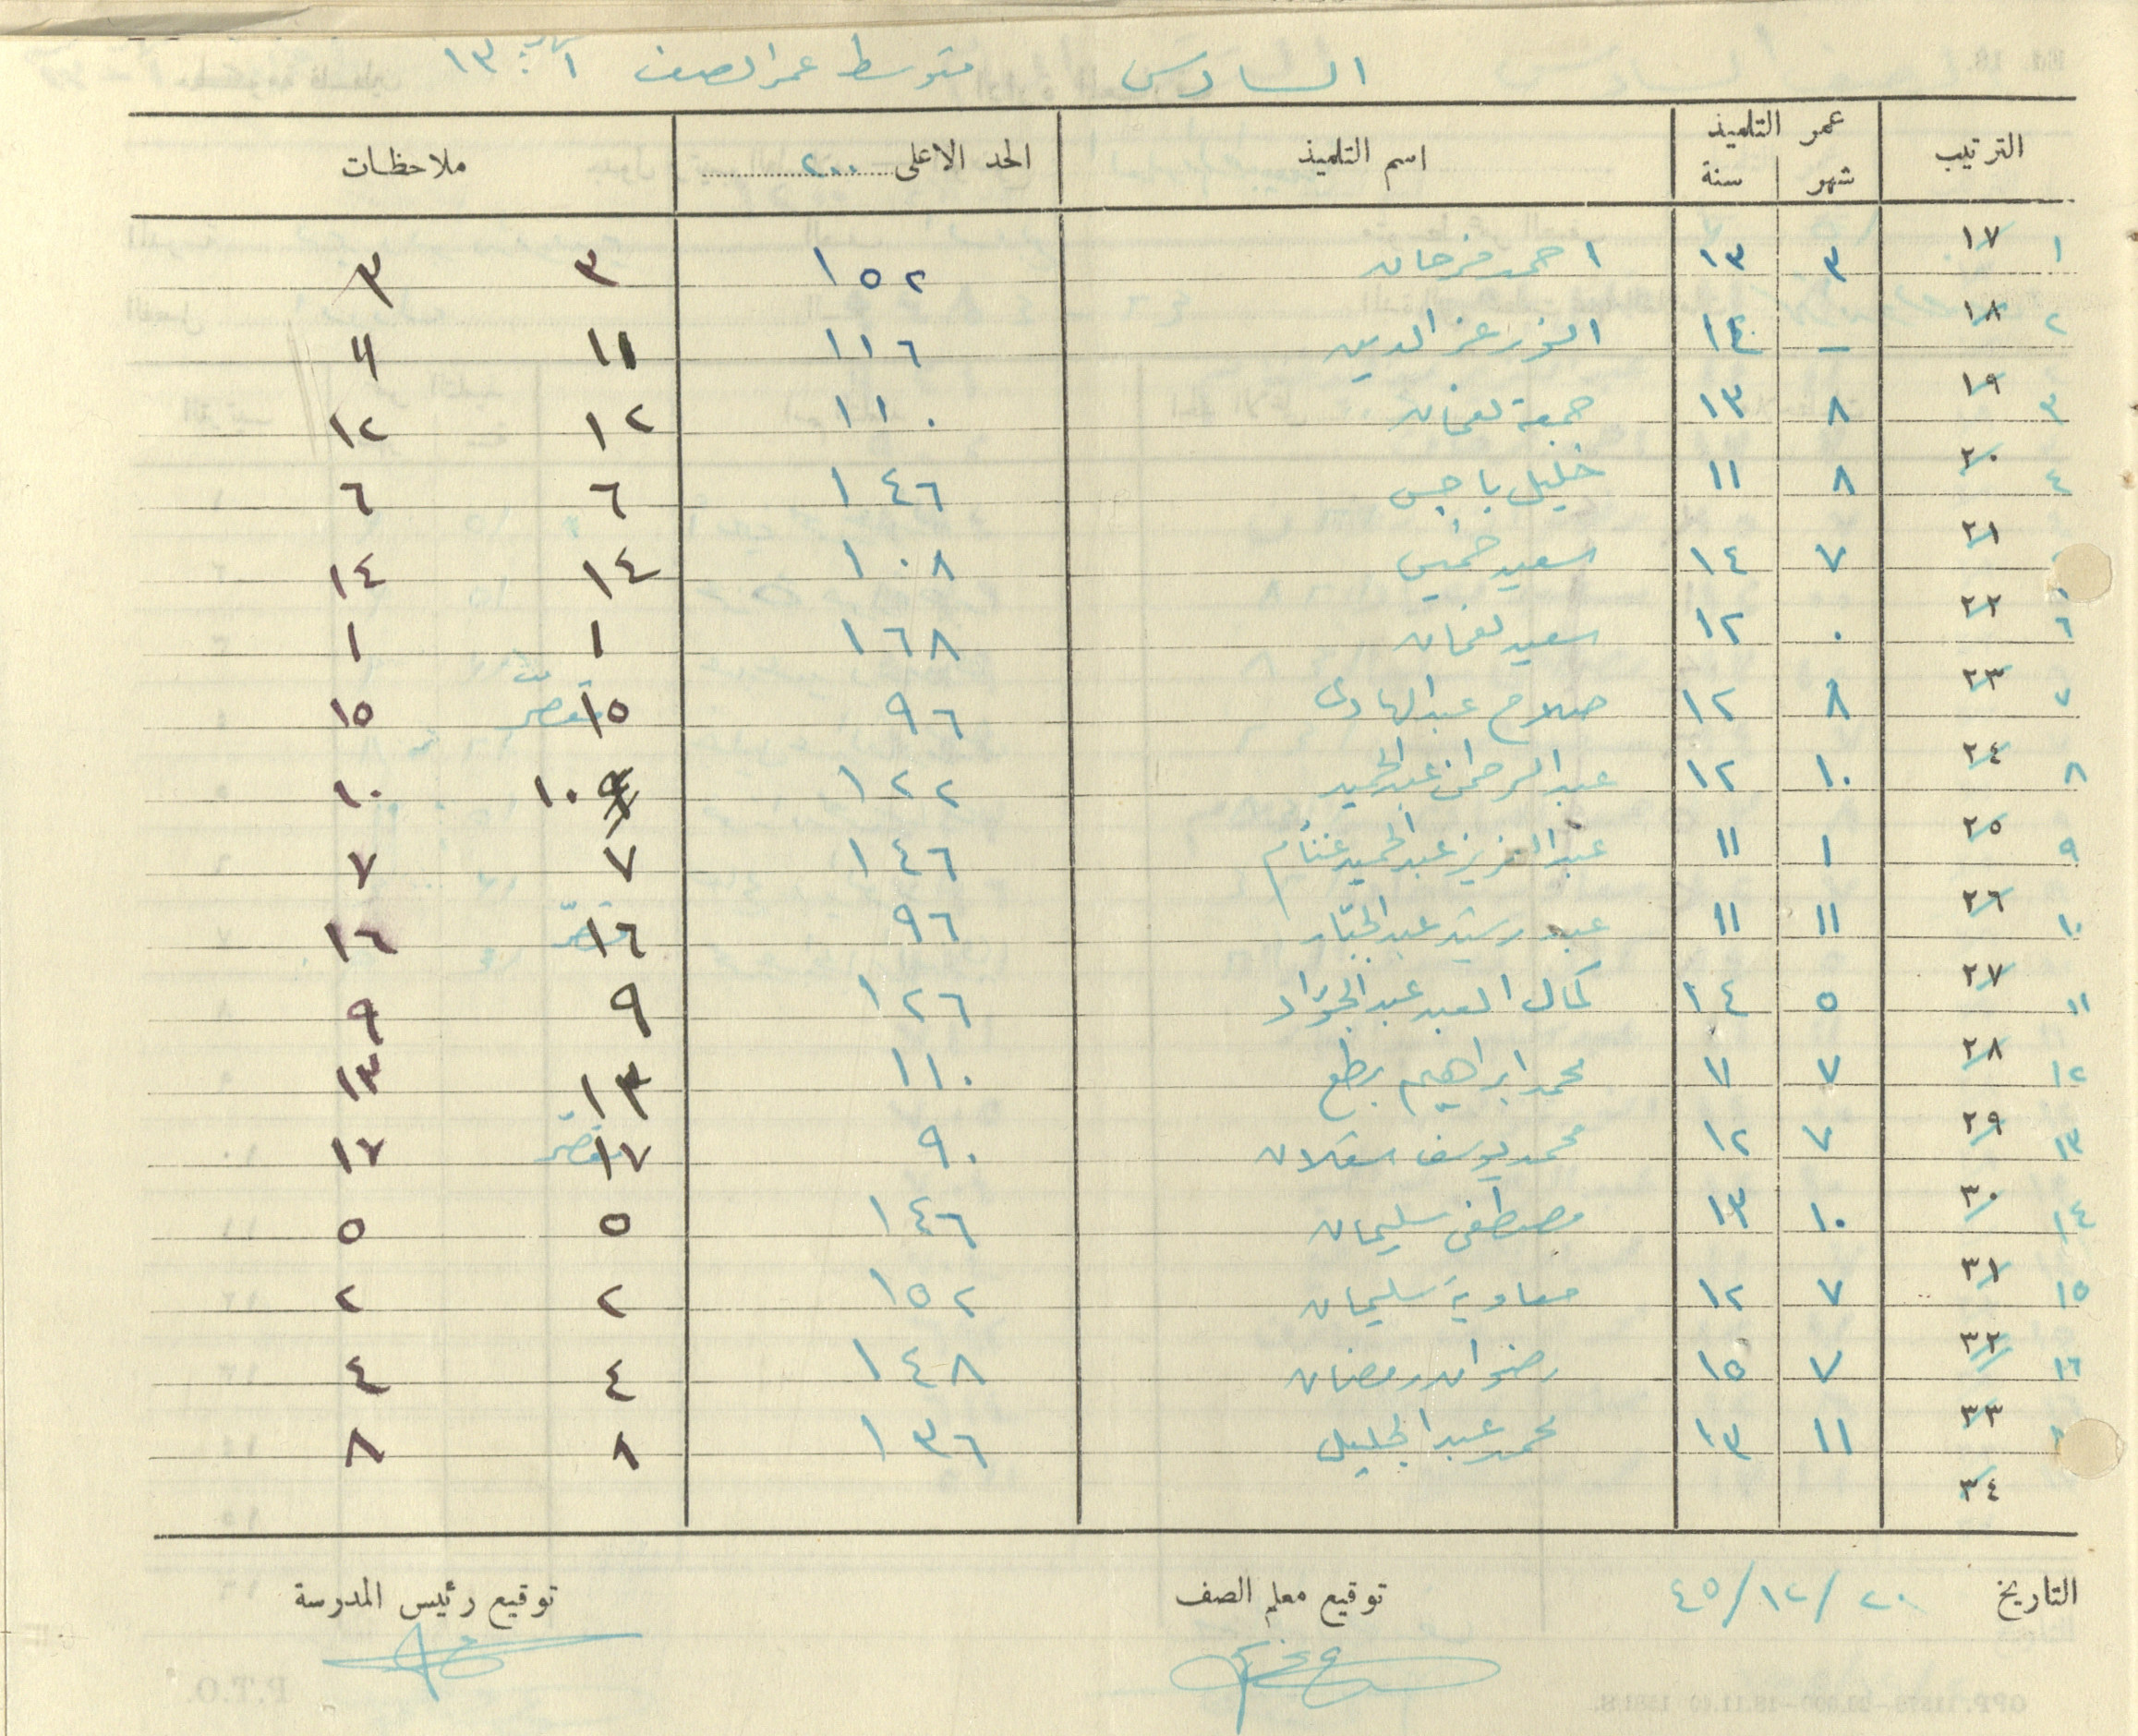 السادس متوسط عمر الصف ١ شهر : ١٣
الترتيب عمر التلميذ اسم التلميذ الحد الاعلى ٢٠٠ ملاحظات
شهر سنة
١ ١٧ ٣ ١٣ احمد فرحان ١٥٢ ٣ ٣
٢ ١٨ — ١٤ انور عز الدين ١١٦ ١١ ١١
٣ ١٩ ٨ ١٣ جمعة نعمان ١١٠ ١٢ ١٢
٤ ٢٠ ٨ ١١ خليل باجس ١٤٦ ٦ ٦
٢١ ٧ ١٤ سعيد خميس ١٠٨ ١٤ ١٤
٦ ٢٢ ٠ ١٢ سعيد نعمان ١٦٨ ١ ١
٧ ٢٣ ٨ ١٢ صلاح عبد الهادي ٩٦ ١٥ مقصر ١٥
٨ ٢٤ ١٠ ١٢ عبد الرحمن عبد الحميد ١٢٢ ١٠ ١٠
٩ ٢٥ ١ ١١ عبد العزيز عبد الحميد غنام ١٤٦ ٧ ٧
١٠ ٢٦ ١١ ١١ عبد رشيد عبد الجبّار ٩٦ ١٦ مقصّر ١٦
١١ ٢٧ ٥ ١٤ كمال العبد عبد الجوّاد ١٢٦ ٩ ٩
١٢ ٢٨ ٧ ١١ محمد ابراهيم ١١٠ ١٣ ١٣
١٣ ٢٩ ٧ ١٢ محمد يوسف ٩٠ ١٧ مقصّر ١٧
١٤ ٣٠ ١٠ ١٣ مصطفى سليمان ١٤٦ ٥ ٥
١٥ ٣١ ٧ ١٢ معاوية سليمان ١٥٢ ٢ ٢
١٦ ٣٢ ٧ ١٥ رضوان رمضان ١٤٨ ٤ ٤
٣٣ ١١ ١٣ محمد عبد الجليل ١٣٦ ٨ ٨
٣٤
التاريخ ٢٠/١٢/٤٥ توقيع معلم الصف توقيع رئيس المدرسة